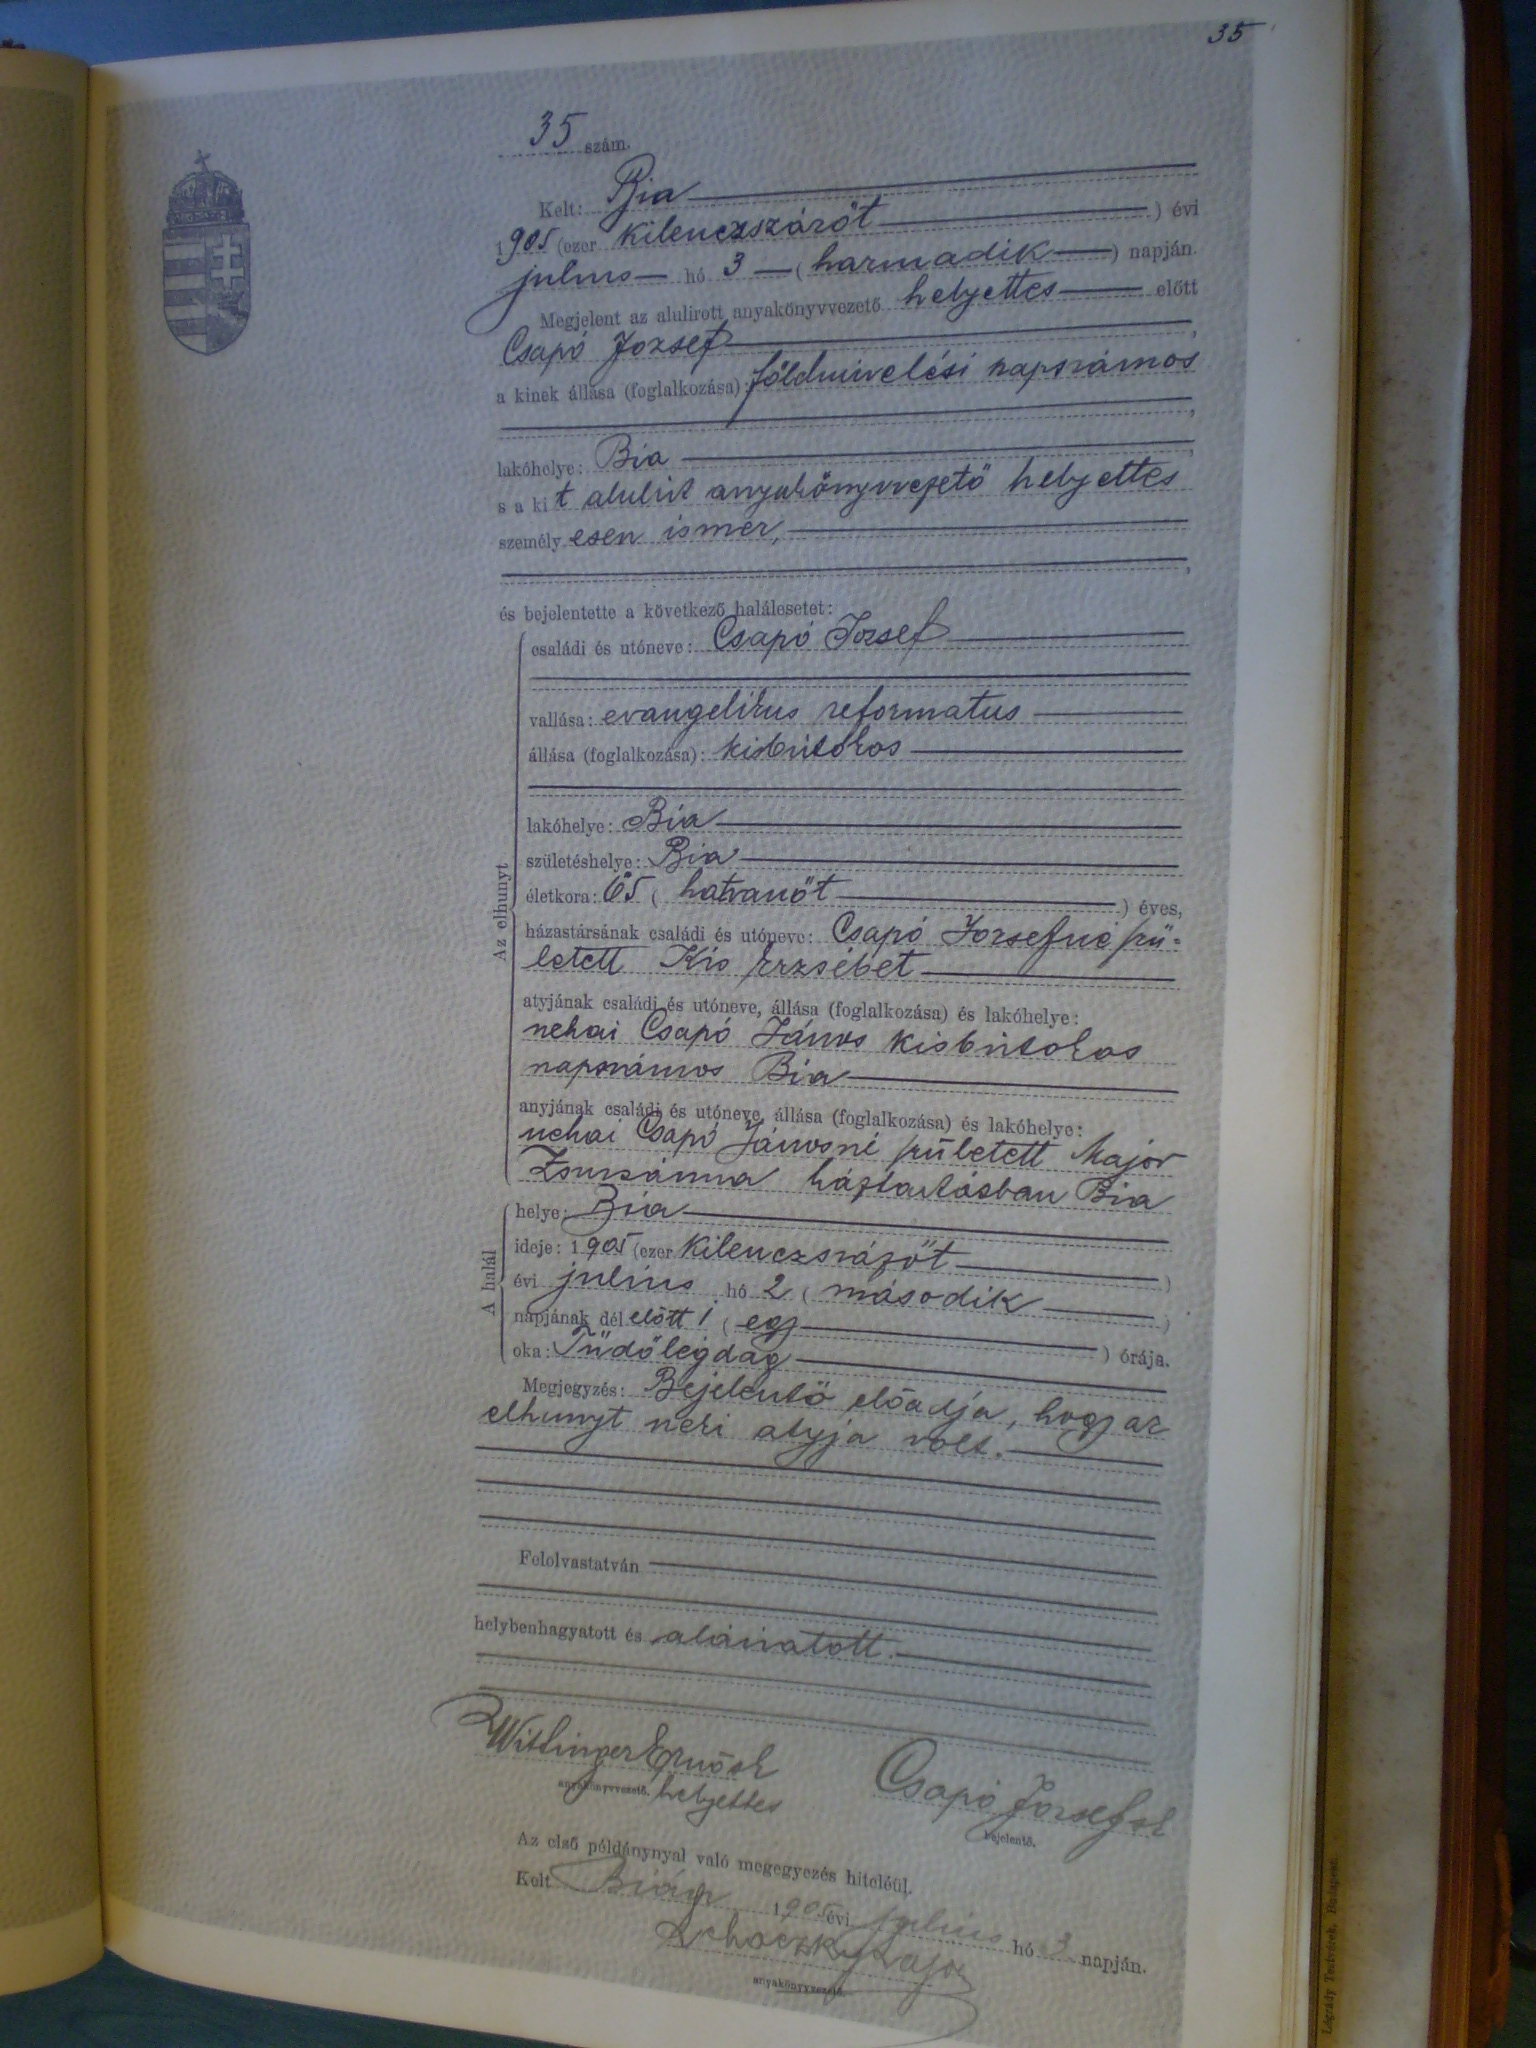 35
35 szám.
Kelt: Bia
1905 (ezer kilenczszázöt) évi
julius hó 3 (harmadik) napján.
Megjelent az alulirott anyakönyvvezető helyettes előtt
Csapó József,
a kinek állása (foglalkozása): földmivelési napszámos
,
lakóhelye: Bia,
s a kit alulirt anyakönyvvezető helyettes
személyesen ismer,
,
és bejelentette a következő halálesetet:
Az elhunyt
családi és utóneve: Csapó József
vallása: evangelikus reformatus
állása (foglalkozása): kisbirtokos
lakóhelye: Bia
születéshelye: Bia
életkora: 65 (hatvanöt) éves,
házastársának családi és utóneve: Csapó Józsefné szü-
letett Kis Erzsébet
atyjának családi és utóneve, állása (foglalkozása) és lakóhelye:
néhai Csapó János kisbirtokos
napszámos Bia
anyjának családi és utóneve, állása (foglalkozása) és lakóhelye:
néhai Csapó Jánosné született Major
Zsuzsánna háztartásban Bia
A halál
helye: Bia
ideje: 1905 (ezer kilenczszázöt)
évi július hó 2 (második)
napjának dél előtt 1 (egy) órája.
oka: Tüdőlégdag
Megjegyzés: Bejelentő előadja, hogy az
elhunyt neki atyja volt.
Felolvastatván
helybenhagyatott és aláiratott.
Wittinger Ernő sk
anyakönyvvezető. helyettes
Csapó József sk
bejelentő.
Az első példánynyal való megegyezés hiteléül.
Kelt Bián 1905 évi julius hó 3 napján.
Lajos
anyakönyvvezető.
Légrády Testvérek, Budapest.